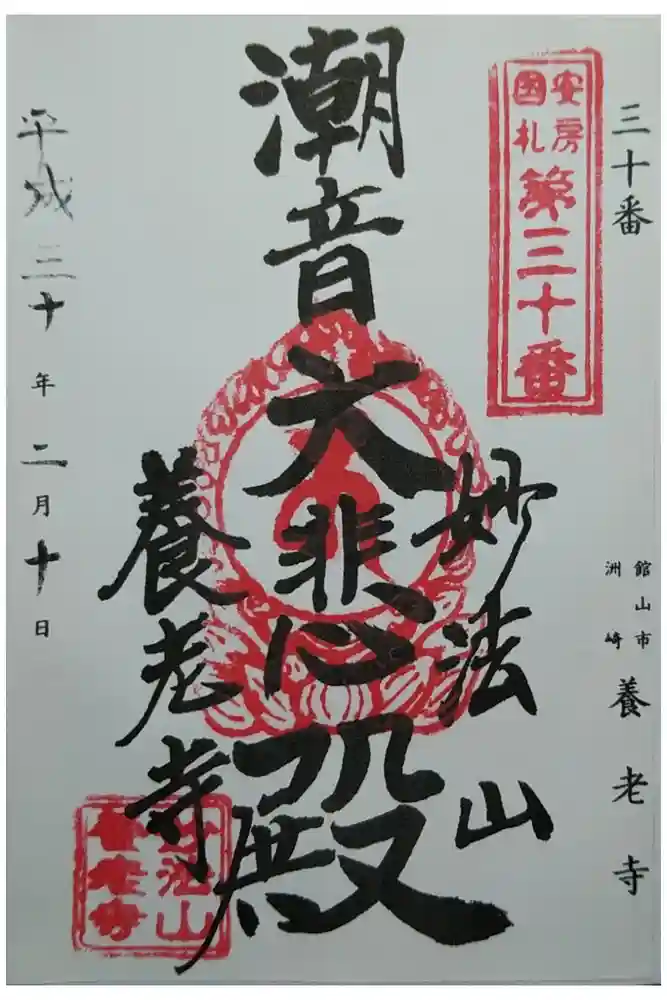 三十番
館山市
洲崎
養老寺
安房
國札
第三十番
妙法山
潮音
大悲殿
養老寺
妙法山
養老寺
平成三十年二月十日